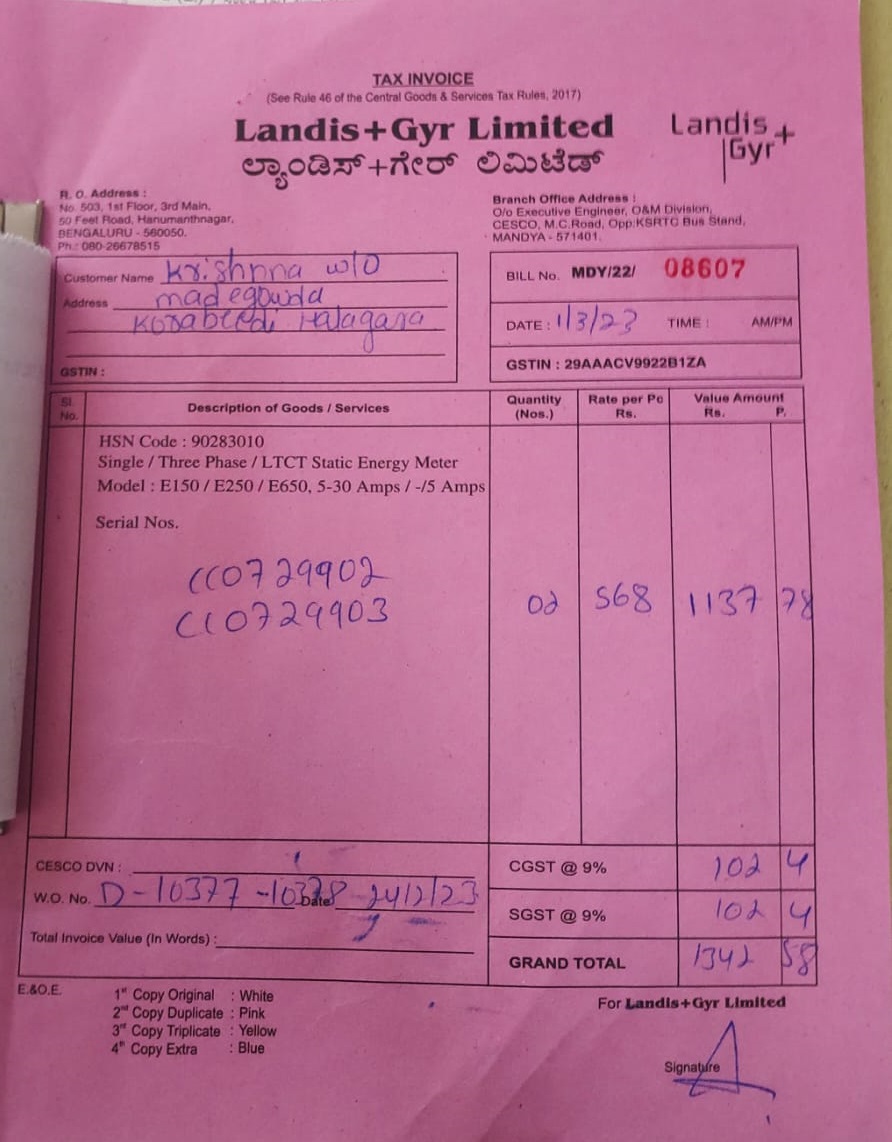 TAX INVOICE
(See Rule 46 of the Central Goods & Services Tax Rules, 2017)
Landis+Gyr Limited
ಲ್ಯಾಂಡಿಸ್+ಗೇರ್ ಲಿಮಿಟೆಡ್
Landis
Gyr+
R. O. Address :
No. 503, 1st Floor, 3rd Main,
50 Feet Road, Hanumanthnagar,
BENGALURU - 560050.
Ph.: 080-26678515
Branch Office Address :
O/o Executive Engineer, O&M Division,
CESCO, M.C.Road, Opp:KSRTC Bus Stand,
MANDYA - 571401.
Customer Name Krishpna w/o
Address madegowda
Korabeedi Halagara
GSTIN :
BILL No. MDY/22/ 08607
DATE : 1/3/23 TIME : AM/PM
GSTIN : 29AAACV9922B1ZA
Sl. No. Description of Goods / Services Quantity (Nos.) Rate per Pc Rs. Value Amount Rs. P.
HSN Code : 90283010
Single / Three Phase / LTCT Static Energy Meter
Model : E150 / E250 / E650, 5-30 Amps / -/5 Amps
Serial Nos.
CC0729902
CC0729903
02 568 1137 78
CESCO DVN :
CGST @ 9% 102 4
W.O. No. D-10377-10378 Date 24/2/23
SGST @ 9% 102 4
Total Invoice Value (In Words) :
GRAND TOTAL 1342 58
E.&O.E.
1st Copy Original : White
2nd Copy Duplicate : Pink
3rd Copy Triplicate : Yellow
4th Copy Extra : Blue
For Landis+Gyr Limited
Signature